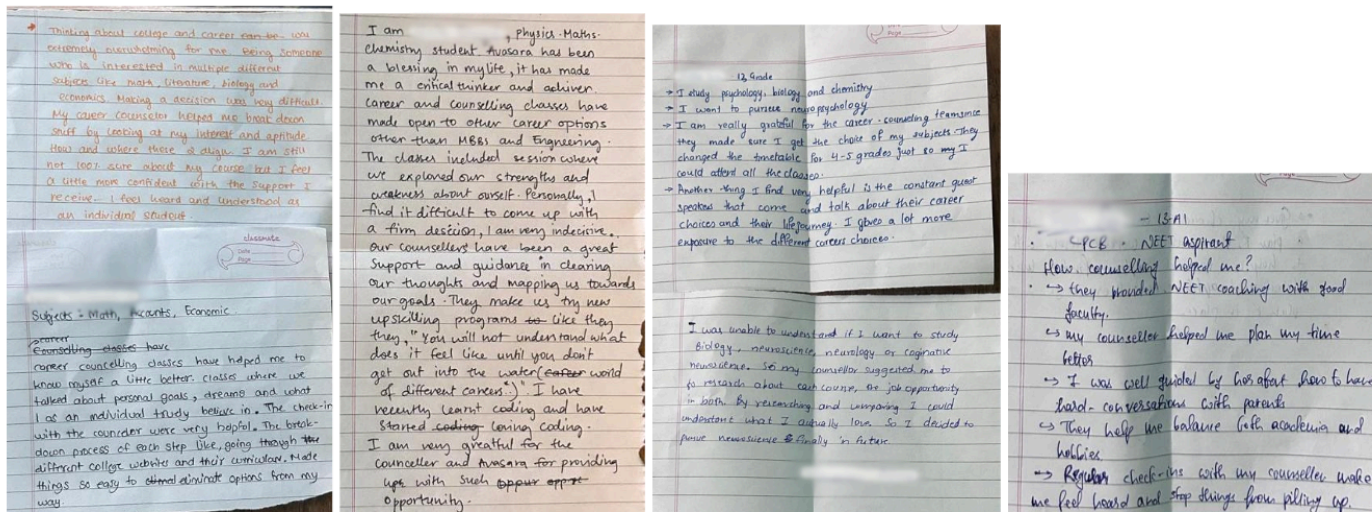 Thinking about college and career can be was
extremely overwhelming for me. Being someone
who is interested in multiple different
subjects like math, literature, biology and
economics. Making a decision was very difficult.
My career counselor helped me break down
stuff by looking at my interest and aptitude
How and where these 2 align. I am still
not 100% sure about my course but I feel
a little more confident with the support I
receive. I feel heard and understood as
an individual student.
classmate
Date
Page
Subjects - Math, Accounts, Economic
career
Counselling classes have
career counselling classes have helped me to
know myself a little better. Classes where we
talked about personal goals, dreams and what
I as an individual truly believe in. The check-in
with the counceler were very helpful. The break-
down process of each step like, going through the
different college websites and their curriculum. Made
things so easy to eliminate options from my
way.
I am , Physics-Maths-
chemistry student. Avasara has been
a blessing in my life, it has made
me a critical thinker and achiver.
career and counselling classes have
made open to other career options
other than MBBS and Engneering.
The classes included session where
we explored our strengths and
weakness about ourself. Personally, I
find it difficult to come up with
a firm desicion, I am very indecisive.
our counsellers have been a great
support and guidance in clearing
our thoughts and mapping us towards
our goals. They make us try new
upskilling programs to like they
they, "You will not understand what
does it feel like until you don't
get out into the water (career world
of different careers.)" I have
recently learnt coding and have
started coding loving coding.
I am very greatful for the
counceller and Avasara for providing
us with such oppur oppor
opportunity.
Page
12 Grade
→ I study psychology, biology and chemistry
→ I want to pursue neuropsychology
→ I am really grateful for the career-counseling team since
they made sure I get the choice of my subjects. They
changed the timetable for 4-5 grades just so my I
could attend all the classes.
→ Another thing I find very helpful is the constant guest
speakers that come and talk about their career
choices and their life journey. I gives a lot more
exposure to the different careers choices.
I was unable to understand if I want to study
Biology, neuroscience, neurology or coginative
neuroscience. So my counsellor suggested me to
to research about each course, job opportunity
in both. By researching and comparing I could
understand what I actually love. So I decided to
pursue neuroscience finally in future
- 13-A1
• CPCB • NEET aspirant
How counselling helped me?
• → they provided NEET coaching with good
faculty.
→ my counseller helped me plan my time
better
→ I was well guided by her about how to have
hard-conversations with parents
→ They help me balance both academia and
hobbies
→ Regular check-ins with my counseller make
me feel heard and stop things from pilling up.